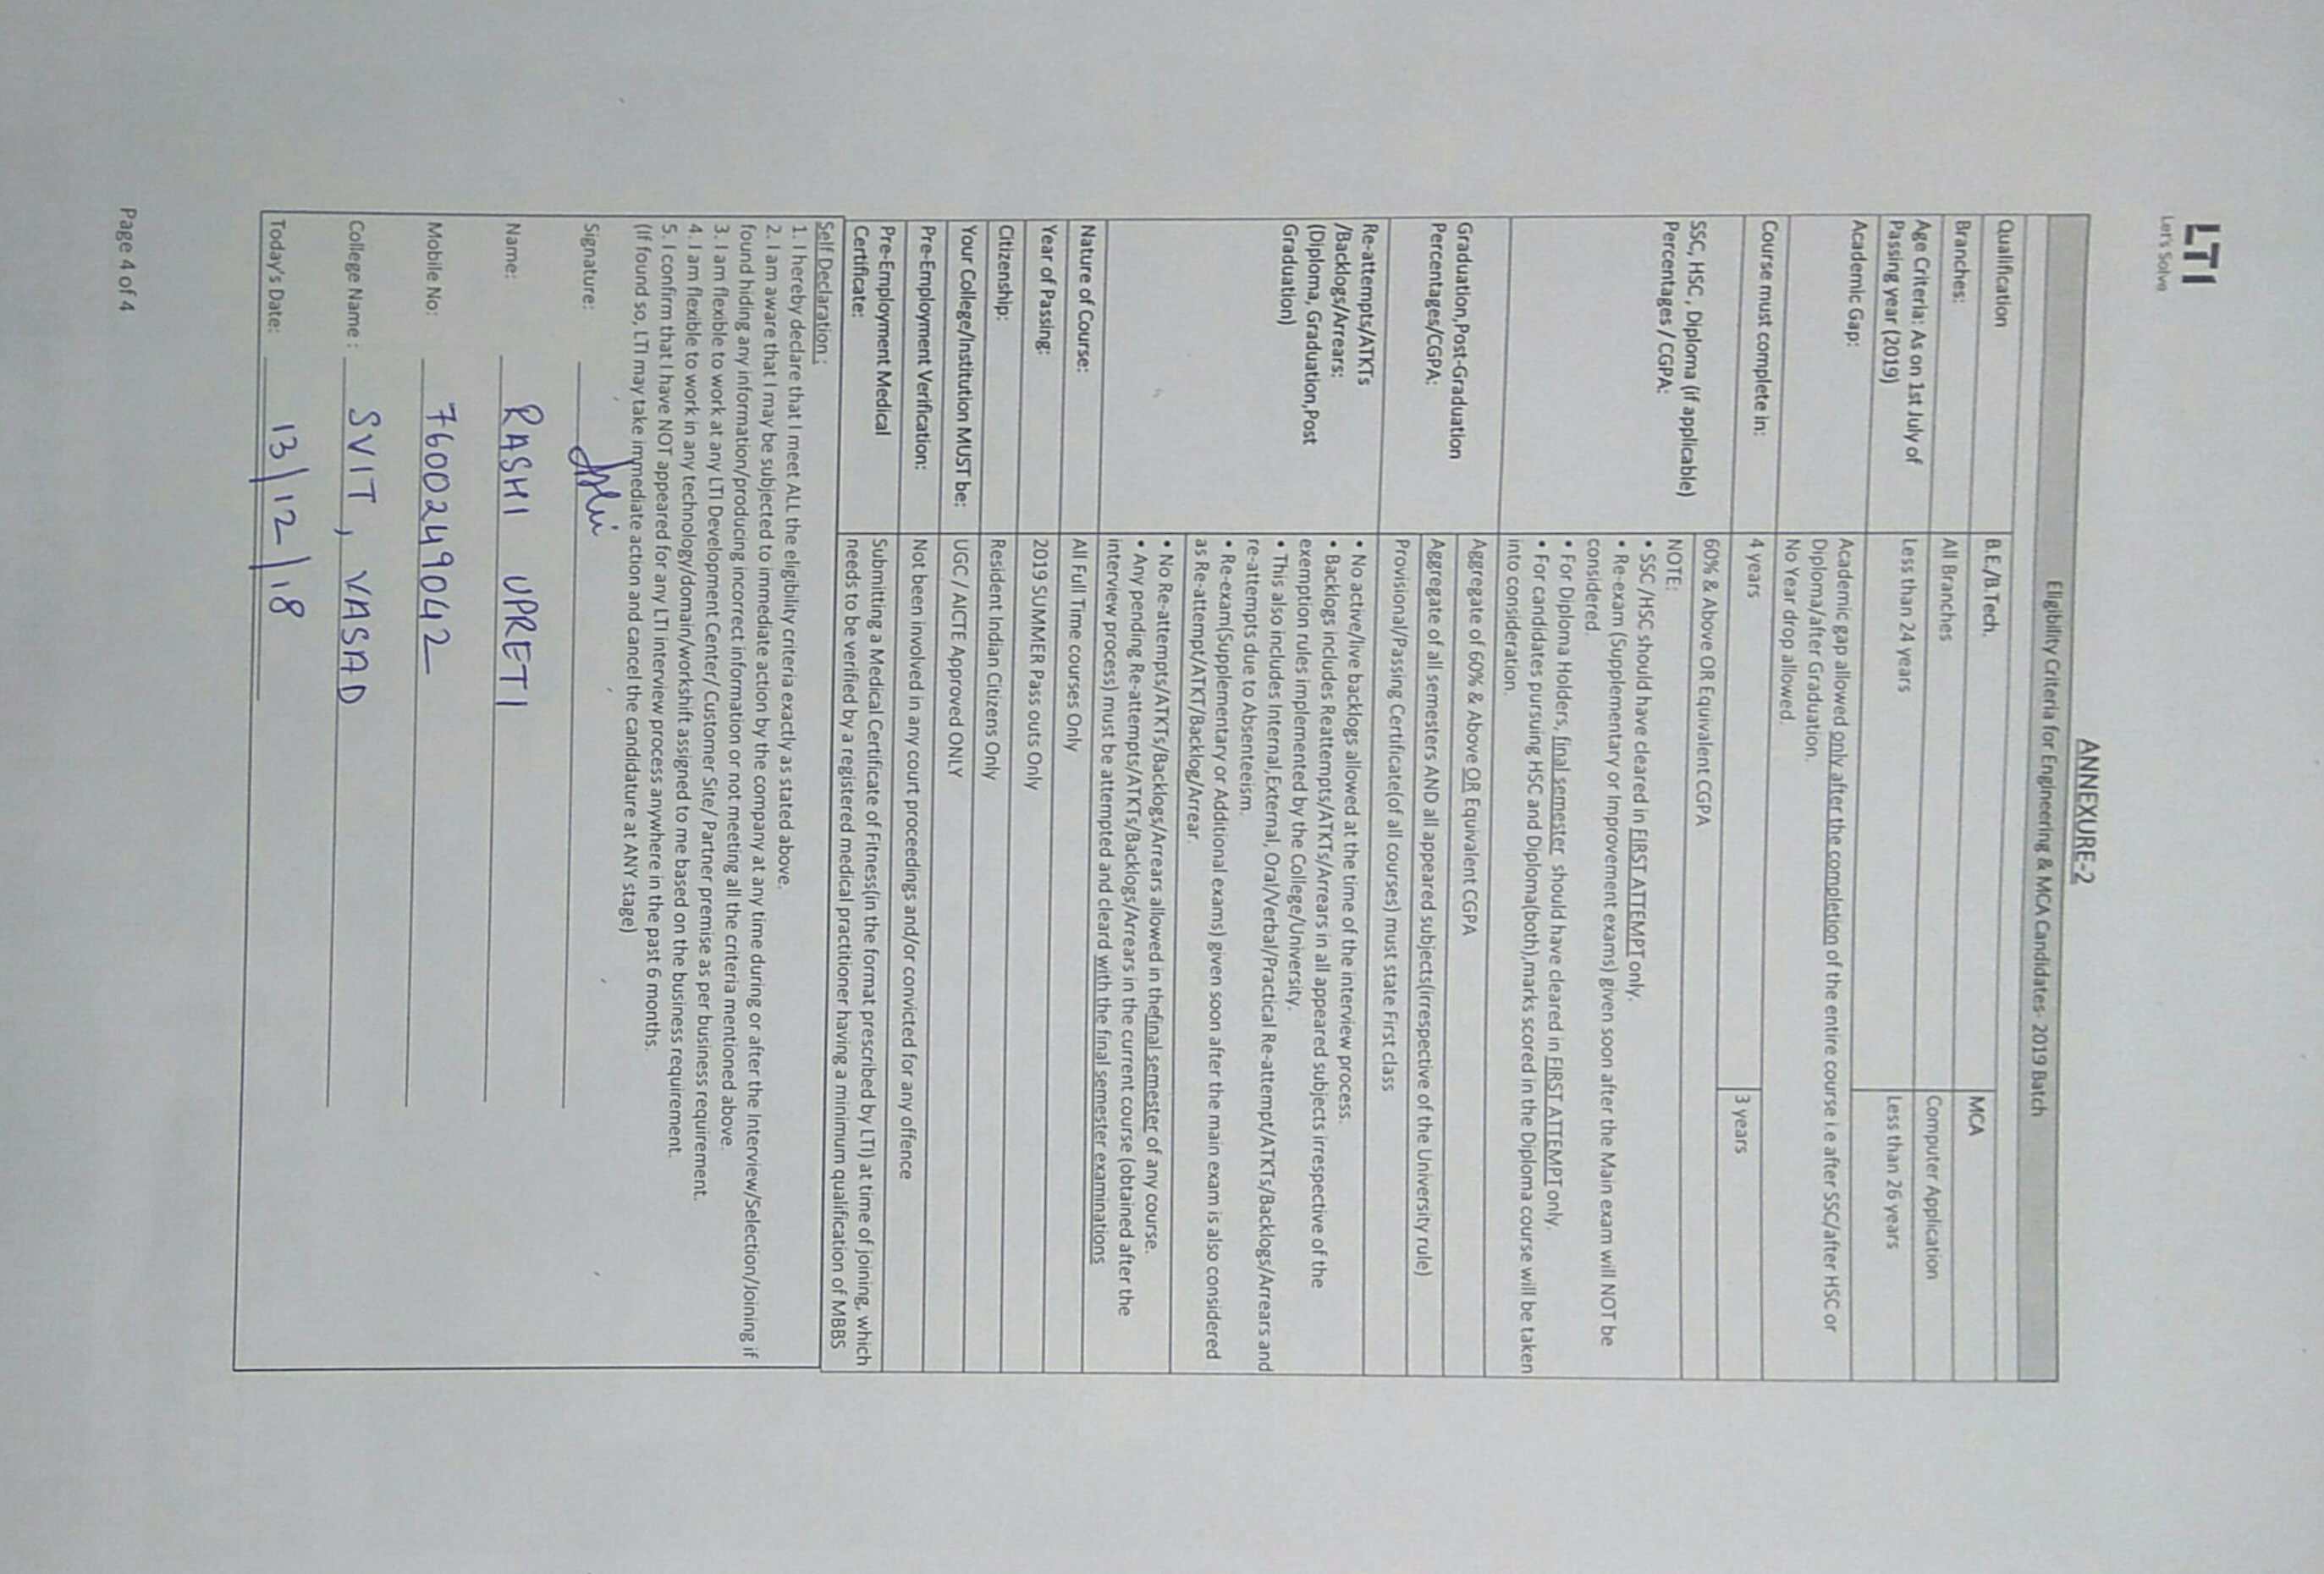 LTI
Let's Solve
ANNEXURE-2
Eligibility Criteria for Engineering & MCA Candidates- 2019 Batch
Qualification B.E./B.Tech. MCA
Branches: All Branches Computer Application
Age Criteria: As on 1st July of
Passing year (2019) Less than 24 years Less than 26 years
Academic Gap: Academic gap allowed only after the completion of the entire course i.e after SSC/after HSC or
Diploma/after Graduation.
No Year drop allowed.
Course must complete in: 4 years 3 years
SSC, HSC , Diploma (if applicable)
Percentages / CGPA:
60% & Above OR Equivalent CGPA
NOTE:
• SSC /HSC should have cleared in FIRST ATTEMPT only.
• Re-exam (Supplementary or Improvement exams) given soon after the Main exam will NOT be
considered.
• For Diploma Holders, final semester should have cleared in FIRST ATTEMPT only.
• For candidates pursuing HSC and Diploma(both),marks scored in the Diploma course will be taken
into consideration.
Graduation,Post-Graduation
Percentages/CGPA:
Aggregate of 60% & Above OR Equivalent CGPA
Aggregate of all semesters AND all appeared subjects(irrespective of the University rule)
Provisional/Passing Certificate(of all courses) must state First class
Re-attempts/ATKTs
/Backlogs/Arrears:
(Diploma, Graduation,Post
Graduation)
• No active/live backlogs allowed at the time of the interview process.
• Backlogs includes Reattempts/ATKTs/Arrears in all appeared subjects irrespective of the
exemption rules implemented by the College/University.
• This also includes Internal,External, Oral/Verbal/Practical Re-attempt/ATKTs/Backlogs/Arrears and
re-attempts due to Absenteeism.
• Re-exam(Supplementary or Additional exams) given soon after the main exam is also considered
as Re-attempt/ATKT/Backlog/Arrear.
• No Re-attempts/ATKTs/Backlogs/Arrears allowed in thefinal semester of any course.
• Any pending Re-attempts/ATKTs/Backlogs/Arrears in the current course (obtained after the
interview process) must be attempted and cleard with the final semester examinations
Nature of Course: All Full Time courses Only
Year of Passing: 2019 SUMMER Pass outs Only
Citizenship: Resident Indian Citizens Only
Your College/Institution MUST be: UGC / AICTE Approved ONLY
Pre-Employment Verification: Not been involved in any court proceedings and/or convicted for any offence
Pre-Employment Medical
Certificate:
Submitting a Medical Certificate of Fitness(in the format prescribed by LTI) at time of joining, which
needs to be verified by a registered medical practitioner having a minimum qualification of MBBS
Self Declaration :
1. I hereby declare that I meet ALL the eligibility criteria exactly as stated above.
2. I am aware that I may be subjected to immediate action by the company at any time during or after the Interview/Selection/Joining if
found hiding any information/producing incorrect information or not meeting all the criteria mentioned above.
3. I am flexible to work at any LTI Development Center/ Customer Site/ Partner premise as per business requirement.
4. I am flexible to work in any technology/domain/workshift assigned to me based on the business requirement.
5. I confirm that I have NOT appeared for any LTI interview process anywhere in the past 6 months.
(If found so, LTI may take immediate action and cancel the candidature at ANY stage)
Signature:
Name: RASHI UPRETI
Mobile No: 7600249042
College Name : SVIT, VASAD
Today's Date: 13/12/18
Page 4 of 4